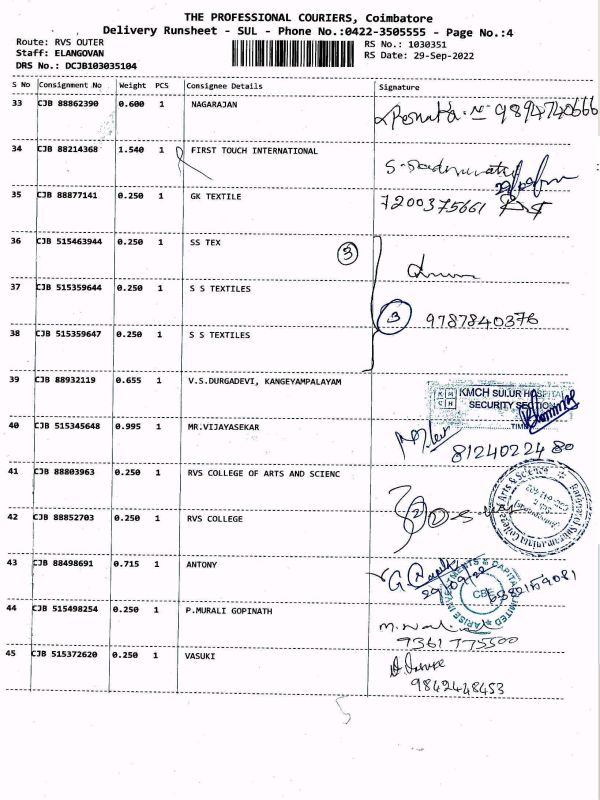 THE PROFESSIONAL COURIERS, Coimbatore
Delivery Runsheet - SUL - Phone No.:0422-3505555 - Page No.:4
Route: RVS OUTER
RS No.: 1030351
Staff: ELANGOVAN
RS Date: 29-Sep-2022
DRS No.: DCJB103035104
S No Consignment No Weight PCS Consignee Details Signature
33 CJB 88862390 0.600 1 NAGARAJAN 9894740666
34 CJB 88214368 1.540 1 FIRST TOUCH INTERNATIONAL
35 CJB 88877141 0.250 1 GK TEXTILE 7200375661
36 CJB 515463944 0.250 1 SS TEX 3
37 CJB 515359644 0.250 1 S S TEXTILES 3 9787840376
38 CJB 515359647 0.250 1 S S TEXTILES
39 CJB 88932119 0.655 1 V.S.DURGADEVI, KANGEYAMPALAYAM
KMCH SULUR HOSPITAL
SECURITY SECTION
TIME
40 CJB 515345648 0.995 1 MR.VIJAYASEKAR 8124022480
41 CJB 88803963 0.250 1 RVS COLLEGE OF ARTS AND SCIENC
42 CJB 88852703 0.250 1 RVS COLLEGE 2
43 CJB 88498691 0.715 1 ANTONY
29/09/22
CBE
44 CJB 515498254 0.250 1 P.MURALI GOPINATH
9361775500
45 CJB 515372620 0.250 1 VASUKI
9842448453